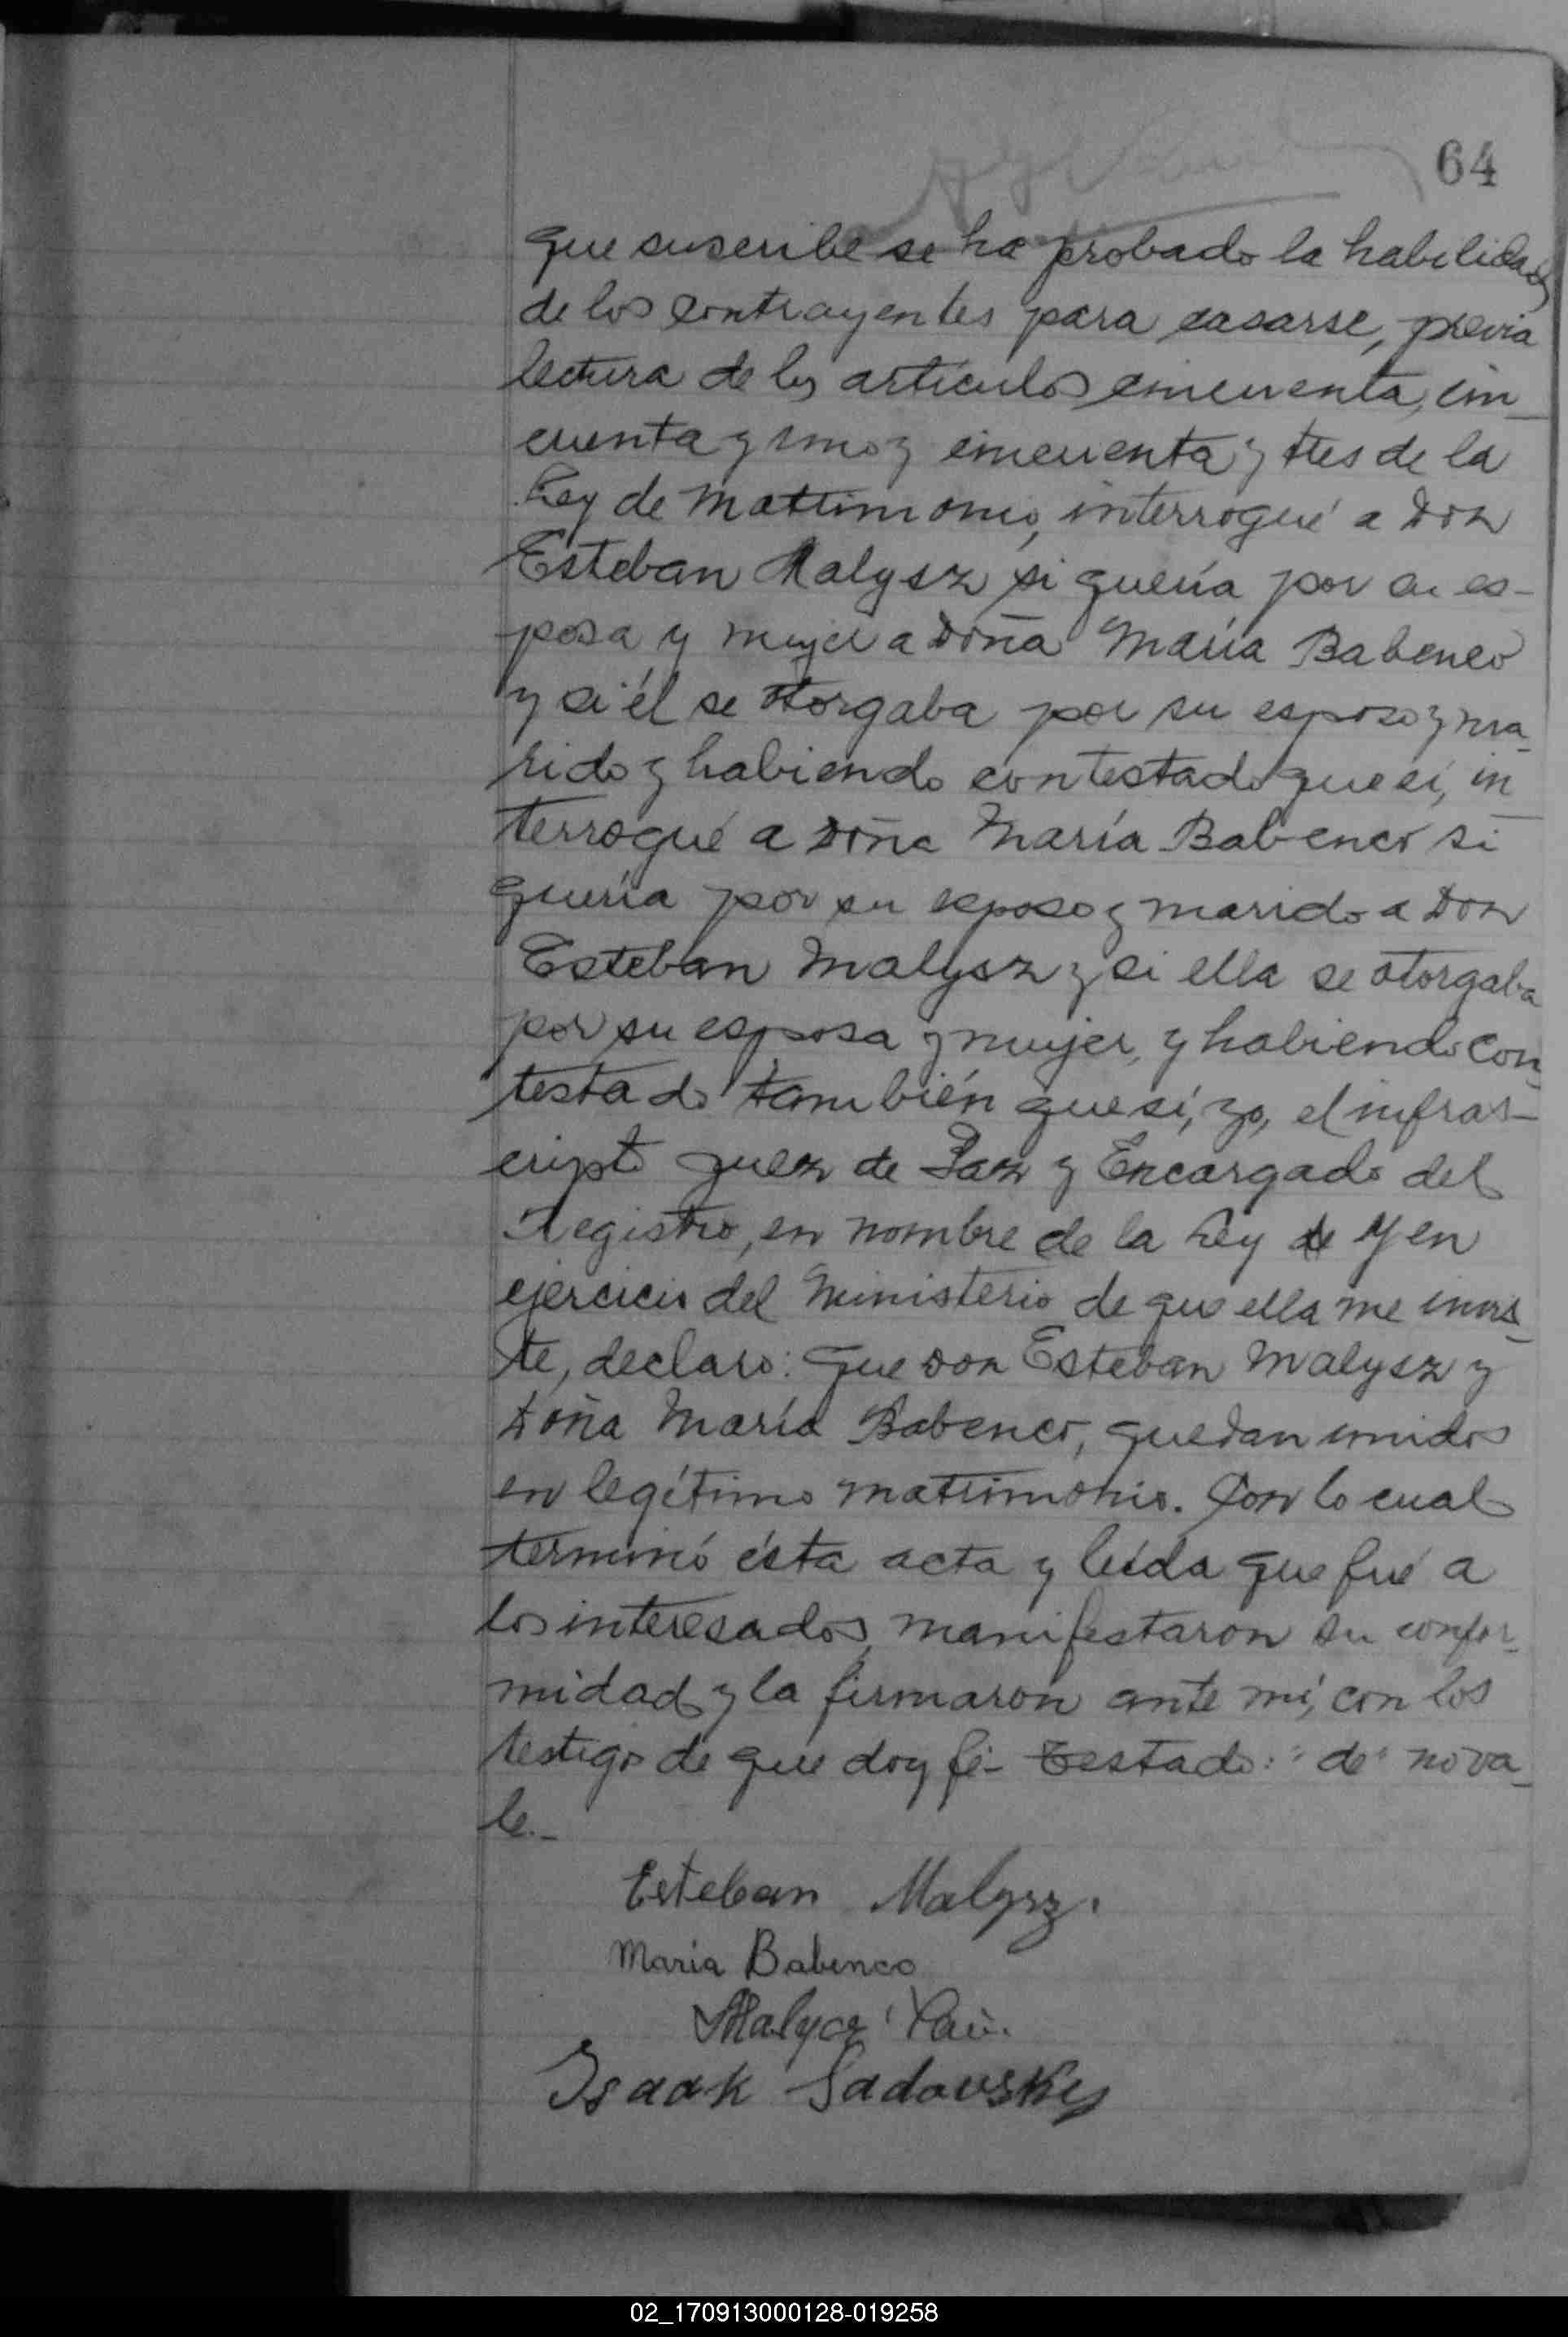 64
que suscribe se ha probado la habilidad
de los contrayentes para casarse, previa
lectura de los artículos cincuenta, cin_
cuenta y uno y cincuenta y tres de la
Ley de Matrimonio, interrogué a Don
Esteban Malysz si quería por su es-
posa y mujer a Doña María Babenco
y si él se otorgaba por su esposo y ma_
rido y habiendo contestado que si, in_
terrogué a Doña María Babenco si
quería por su esposo y marido a Don
Esteban Malysz y si ella se otorgaba
por su esposa y mujer, y habiendo con_
testado también que sí, yo, el infras-
cripto Juez de Paz y Encargado del
Registro, en nombre de la Ley de y en
ejercicio del Ministerio de que ella me invis_
te, declaro: que Don Esteban Malysz y
Doña María Babenco, quedan unidos
en legítimo matrimonio. Con lo cual
terminó ésta acta y leída que fué a
los interesados, manifestaron su confor_
midad y la firmaron ante mí, con los
testigo de que doy fé- Testado: "de" no va_
le.-
Esteban Malysz.
Maria Babenco
Malycz
Isaak Sadovsky
02_170913000128-019258